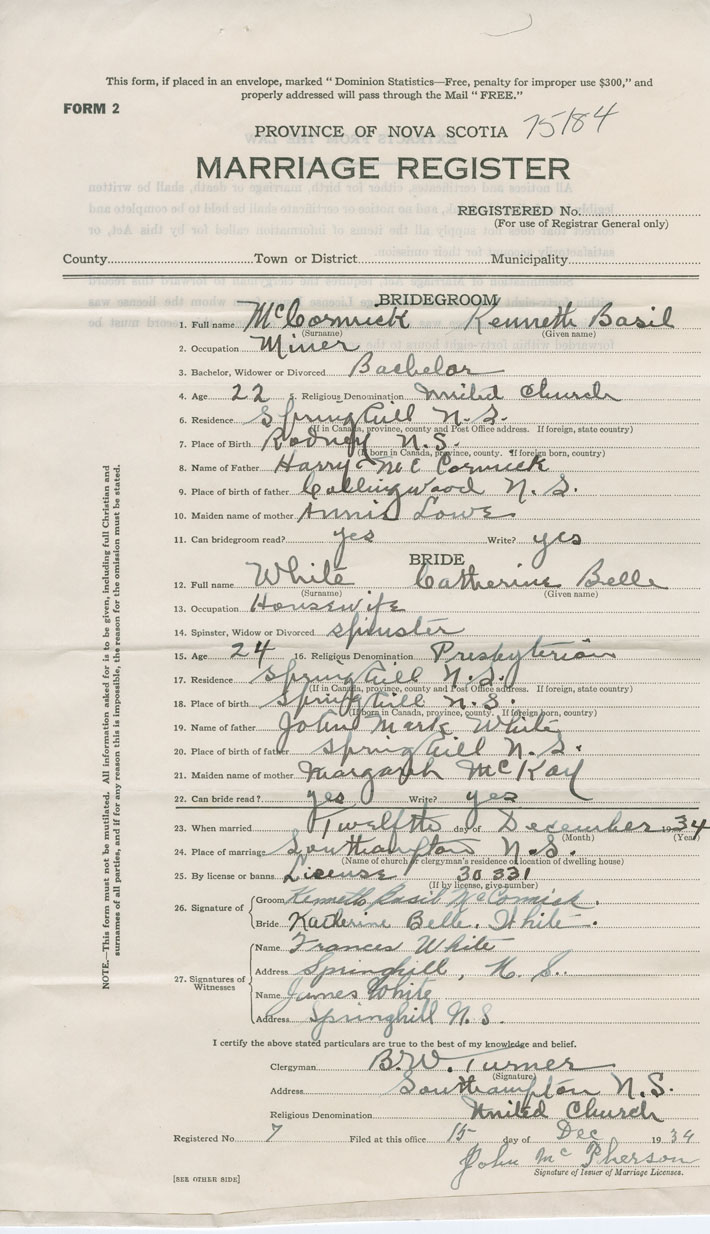 This form, if placed in an envelope, marked “ Dominion Statistics—Free, penalty for improper use $300,” and
properly addressed will pass through the Mail “ FREE.”
FORM 2
PROVINCE OF NOVA SCOTIA 75184
MARRIAGE REGISTER
REGISTERED No.
(For use of Registrar General only)
County Town or District Municipality
BRIDEGROOM
1. Full name McCormick Kenneth Basil
(Surname) (Given name)
2. Occupation Miner
3. Bachelor, Widower or Divorced Bachelor
4. Age 22 5. Religious Denomination United Church
6. Residence Springhill N.S.
(If in Canada, province, county and Post Office address. If foreign, state country)
7. Place of Birth Rodney N.S.
(If born in Canada, province, county. If foreign born, country)
8. Name of Father Harry McCormick
9. Place of birth of father Collingwood N.S.
10. Maiden name of mother Annie Lowe
11. Can bridegroom read? yes Write? yes
BRIDE
12. Full name White Catherine Belle
(Surname) (Given name)
13. Occupation Housewife
14. Spinster, Widow or Divorced spinster
15. Age 24 16. Religious Denomination Presbyterian
17. Residence Springhill N.S.
(If in Canada, province, county and Post Office address. If foreign, state country)
18. Place of birth Springhill N.S.
(If born in Canada, province, county. If foreign born, country)
19. Name of father John Mark White
20. Place of birth of father Springhill N.S.
21. Maiden name of mother Margaret McKay
22. Can bride read? yes Write? yes
23. When married Twelfth day of December 1934
(Month) (Year)
24. Place of marriage Southampton N.S.
(Name of church or clergyman's residence or location of dwelling house)
25. By license or banns License 30331
(If by license, give number)
26. Signature of
Groom Kenneth Basil McCormick.
Bride Katherine Belle. White.
27. Signatures of Witnesses
Name Frances White
Address Springhill, N.S.
Name James White
Address Springhill N.S.
I certify the above stated particulars are true to the best of my knowledge and belief.
Clergyman B.W. Turner
(Signature)
Address Southampton N.S.
Religious Denomination United Church
Registered No. 7 Filed at this office 15 day of Dec 1934
John McPherson
Signature of Issuer of Marriage Licenses.
[SEE OTHER SIDE]
NOTE.—This form must not be mutilated. All information asked for is to be given, including full Christian and
surnames of all parties, and if for any reason this is impossible, the reason for the omission must be stated.